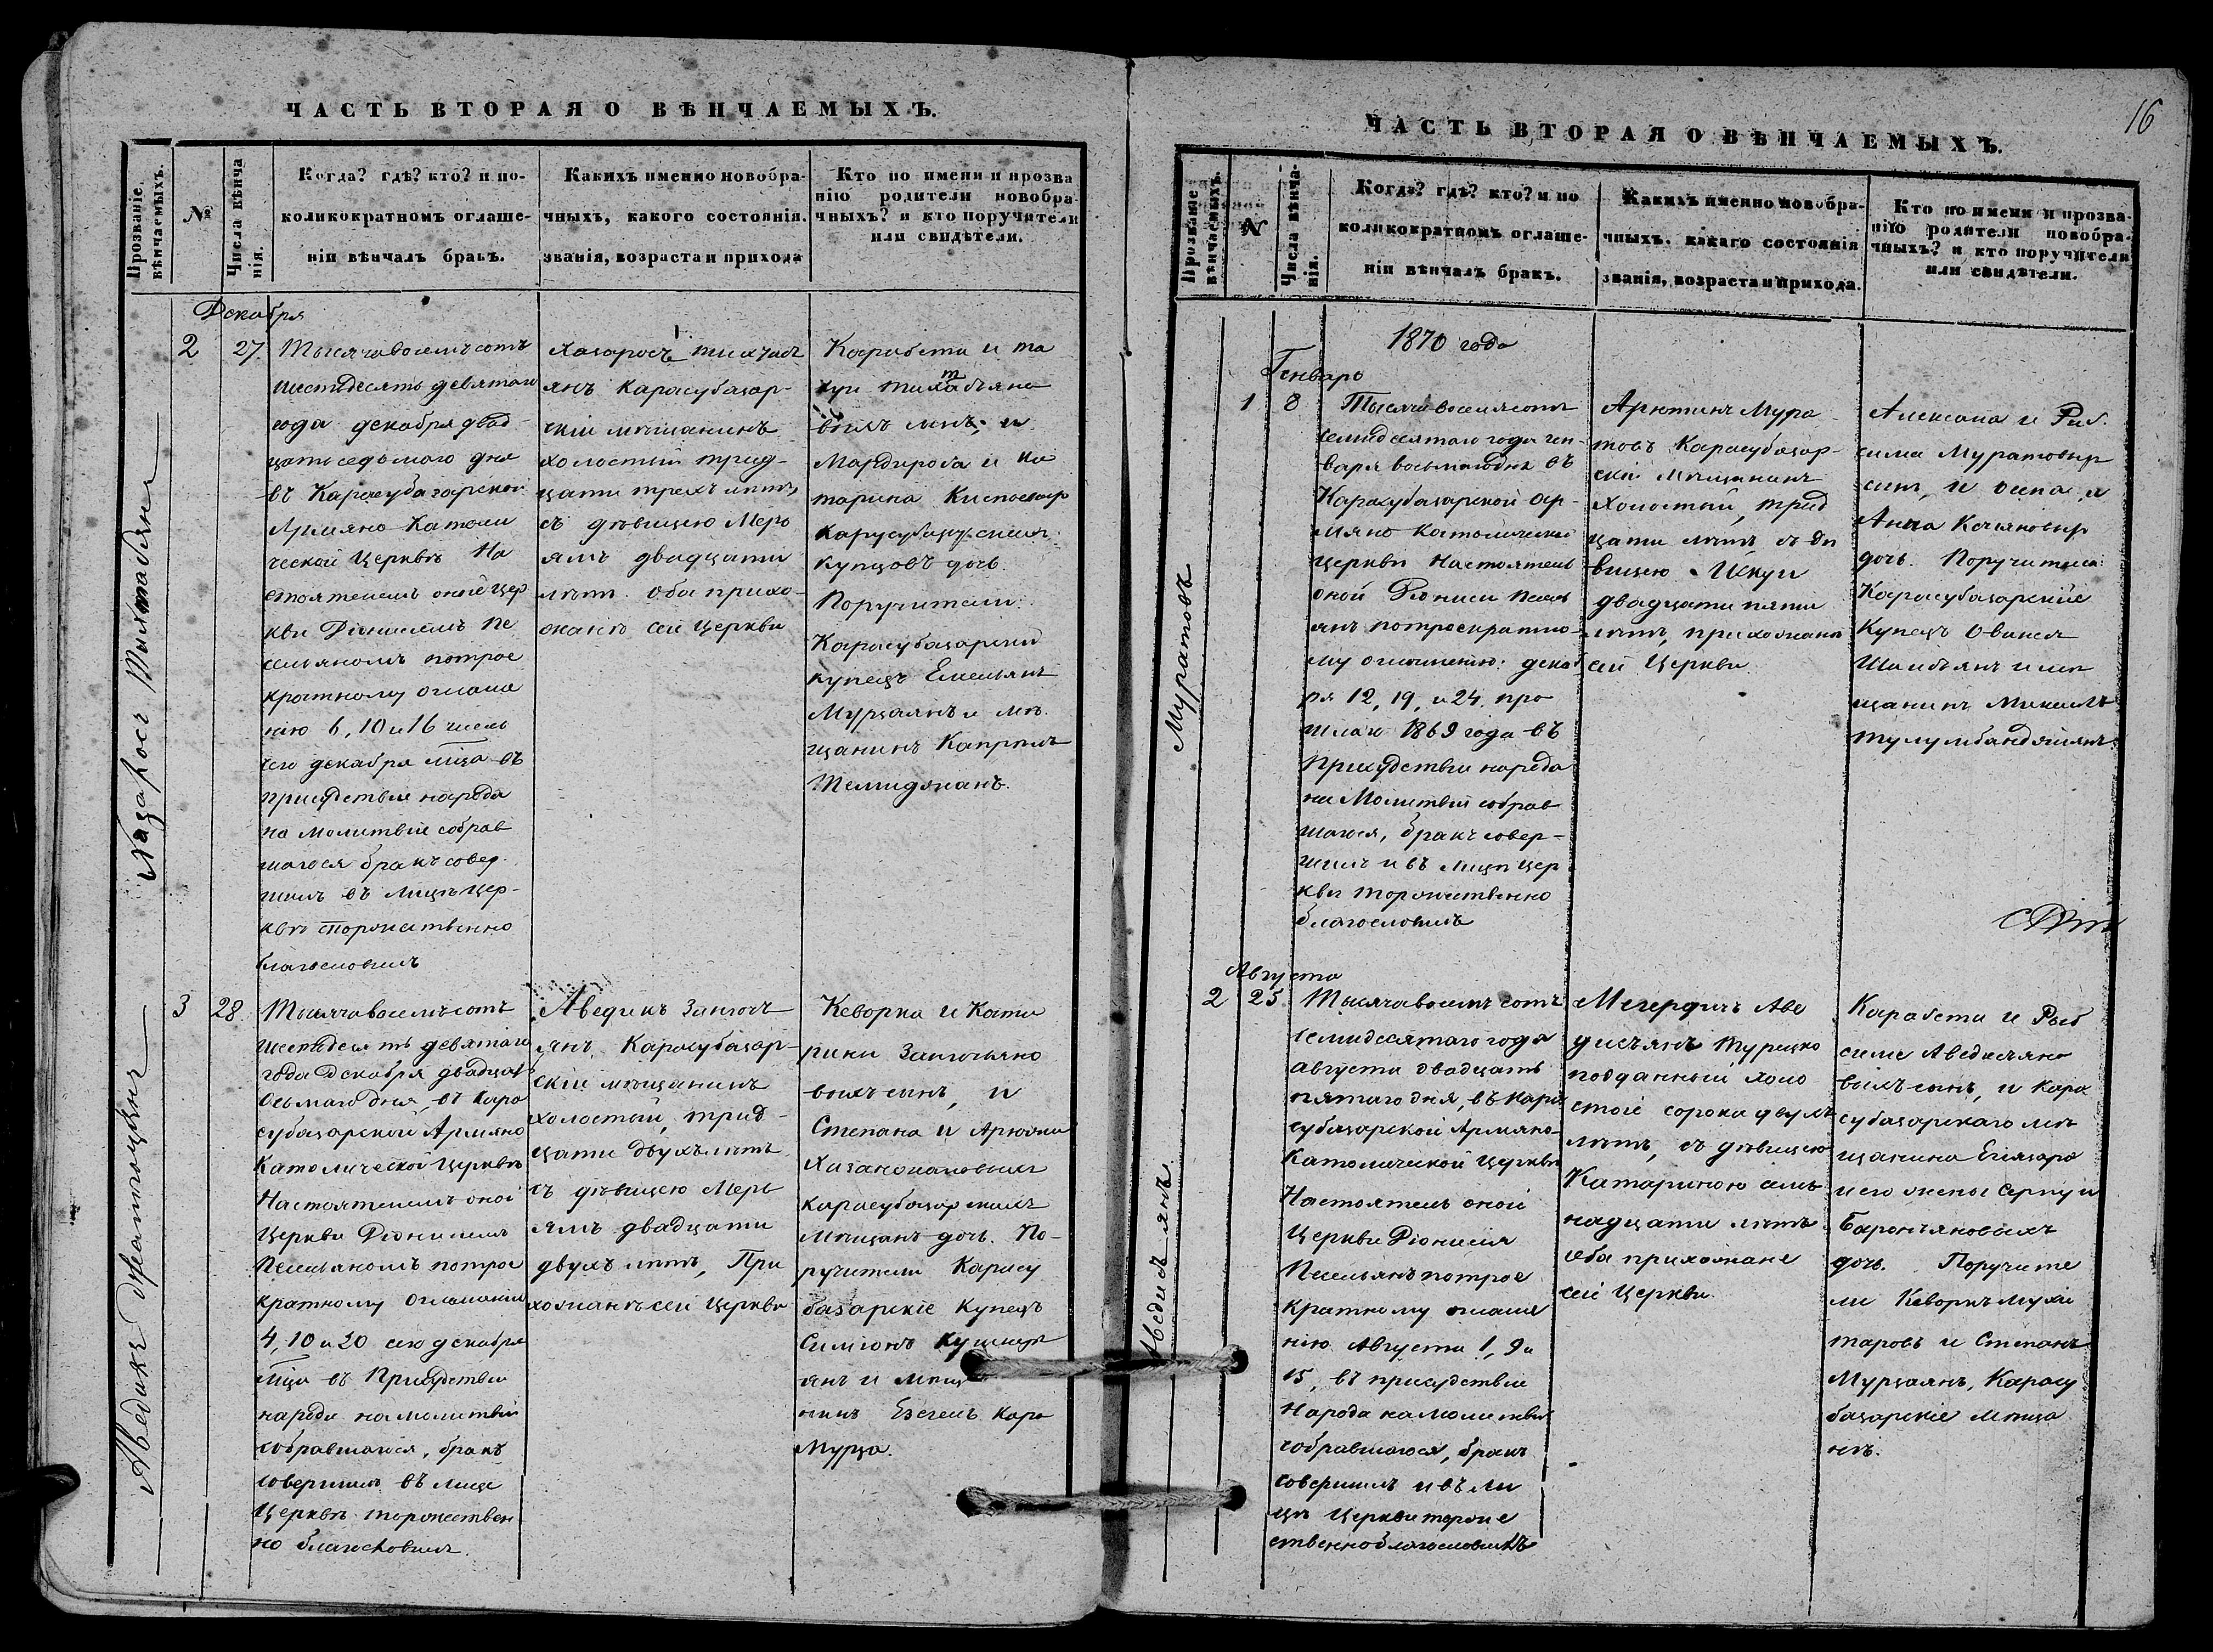 ЧАСТЬ ВТОРАЯ О ВѢНЧАЕМЫХЪ.
Прозваніе вѣнчаемыхъ.
№
Числа вѣнча
нія.
Когда? гдѣ? кто? и по-
коликократномъ оглаше-
ніи вѣнчалъ бракъ.
Какихъ именно новобра-
чныхъ, какого состоянія.
званія, возраста и прихода
Кто по имени и прозва
нію родители новобра-
чныхъ? и кто поручители
или свидѣтели.
Декабря
2
27.
Тысяча восемьсотъ
шестдесять девятаго
года декабря двад-
цать седьмаго дня
въ Карасубазарской
Армяно Католи
ческой Церквѣ На
стоятелемъ оной цер
кви Діонисіемъ Пе
сельяномъ потрое
кратному оглаше
нію 6, 10 и 16 чиселъ
сего декабря мца въ
присудствіе народа
на молитвіе собрав
шагося бракъ совер
шилъ въ лицѣ цер-
квѣ торжественно
благословилъ
Карасубазар-
скій мѣщанинъ
холостый трид-
цати трехъ лѣтъ,
съ дѣвицею Меръ
ямъ двадцати
лѣтъ. Оба прихо-
жанѣ сей Церкви
Карабета и
Мардироса и Ка
тарина
купцовъ дочь.
Поручители:
Карасубазарскій
купецъ Емельянъ
Мурзаянъ и мѣ
щанинъ Капрелъ
3
28.
Тысяча восемьсотъ
шестдесять девятаго
года декабря двадцать
осьмаго дня, въ Кара
субазарской Армяно
Католической Церквѣ
Настоятелемъ оной
Церкви Діонисіемъ
Песельяномъ потрое
кратному оглашенію
4, 10 и 20 сего декабря
мца въ присудствіи
народа на молитвіи
собравшагося, бракъ
совершилъ въ лице
Церквѣ торжествен
но благословилъ.
Аведикъ
янъ, Карасубазар-
скій мѣщанинъ
холостый, трид-
цати двухъ лѣтъ
съ дѣвицею Меръ
ямъ двадцати
двухъ лѣтъ, При
хожанѣ сей Церкви
Кеворка и Ката
рини
выхъ сынъ, и
Степана и
карасубазарскихъ
мѣщанъ дочь. По-
ручители Карасу
базарскіе купецъ
Симіонъ
янъ и мѣща
нинъ Кара
Мурза.
ЧАСТЬ ВТОРАЯ О ВѢНЧАЕМЫХЪ.
16
Прозваніе вѣнчаемыхъ.
№
Числа вѣнча-
нія.
Когда? гдѣ? кто? и по
коликократномъ оглаше-
ніи вѣнчалъ бракъ.
Какихъ именно новобра-
чныхъ. какаго состоянія
званія, возраста и прихода.
Кто по имени и прозва-
нію родители новобра-
чныхъ? и кто поручители
или свидѣтели.
1870 года
Генваря
Муратовъ
1
8
Тысяча восемьсотъ
семидесятаго года ген-
варя восьмаго дня въ
Карасубазарской Ар-
мяно Католической
церкви Настоятель
оной Діонисій Песель
янъ потроекратно-
му оглашенію: декаб
ря 12, 19, и 24, про
шлаго 1869 года въ
присудствіи народа
на Молитвіи собрав
шагося, бракъ совер-
шилъ и въ лицѣ Цер
кви торжественно
благословилъ
Арютинъ Мура
товъ Карасубазар-
скій мѣщанинъ
холостый, трид
цати лѣтъ съ дѣ
вицею
двадцати пяти
лѣтъ, прихожанѣ
сей Церкви
Алексана и Риб
сима Муратовыхъ
сынъ, и Осипа и
Анна
дочь. Поручители
Карасубазарскіе
Купецъ Ованесъ
и мѣ
щанинъ
Августа
2
25
Тысяча восемьсотъ
семидесятаго года
августа двадцать
пятаго дня, въ Кара
субазарской Армяно-
Католической Церквѣ
Настоятель оной
Церкви Діонисій
Песельянъ потрое
кратному оглаше
нію Августа 1, 9 и
15, въ присудствіе
Народа на молитвіи
собравшагося, бракъ
совершилъ и въ ли
цѣ Церкви торже
ственно благословилъ
Мегердичъ Аве
дисъянъ Турецко
подданный холо
стой сорока двухъ
лѣтъ, съ дѣвицею
Катариною семь
надцати лѣтъ
оба прихожане
сей Церкви.
Карабета и Рыб
симе Аведисъяно
выхъ сынъ, и кара
субазарскаго мѣ
щанина Егіазара
и его жены Серпуи
Баронъяновыхъ
дочь. Поручите
ли Кеворкъ Мухи
таровъ и Степанъ
Мурзаянъ, Карасу
базарскіе мѣща
нѣ.